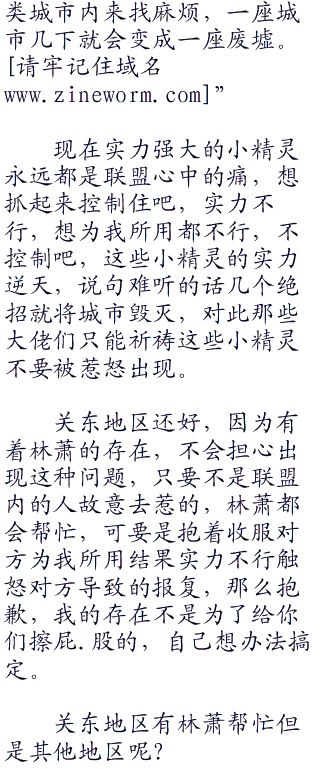 类城市内来找麻烦，一座城
市几下就会变成一座废墟。
[请牢记住域名
www.zineworm.com]”
现在实力强大的小精灵
永远都是联盟心中的痛，想
抓起来控制住吧，实力不
行，想为我所用都不行，不
控制吧，这些小精灵的实力
逆天，说句难听的话几个绝
招就将城市毁灭，对此那些
大佬们只能祈祷这些小精灵
不要被惹怒出现。
关东地区还好，因为有
着林萧的存在，不会担心出
现这种问题，只要不是联盟
内的人故意去惹的，林萧都
会帮忙，可要是抱着收服对
方为我所用结果实力不行触
怒对方导致的报复，那么抱
歉，我的存在不是为了给你
们擦屁.股的，自己想办法搞
定。
关东地区有林萧帮忙但
是其他地区呢？